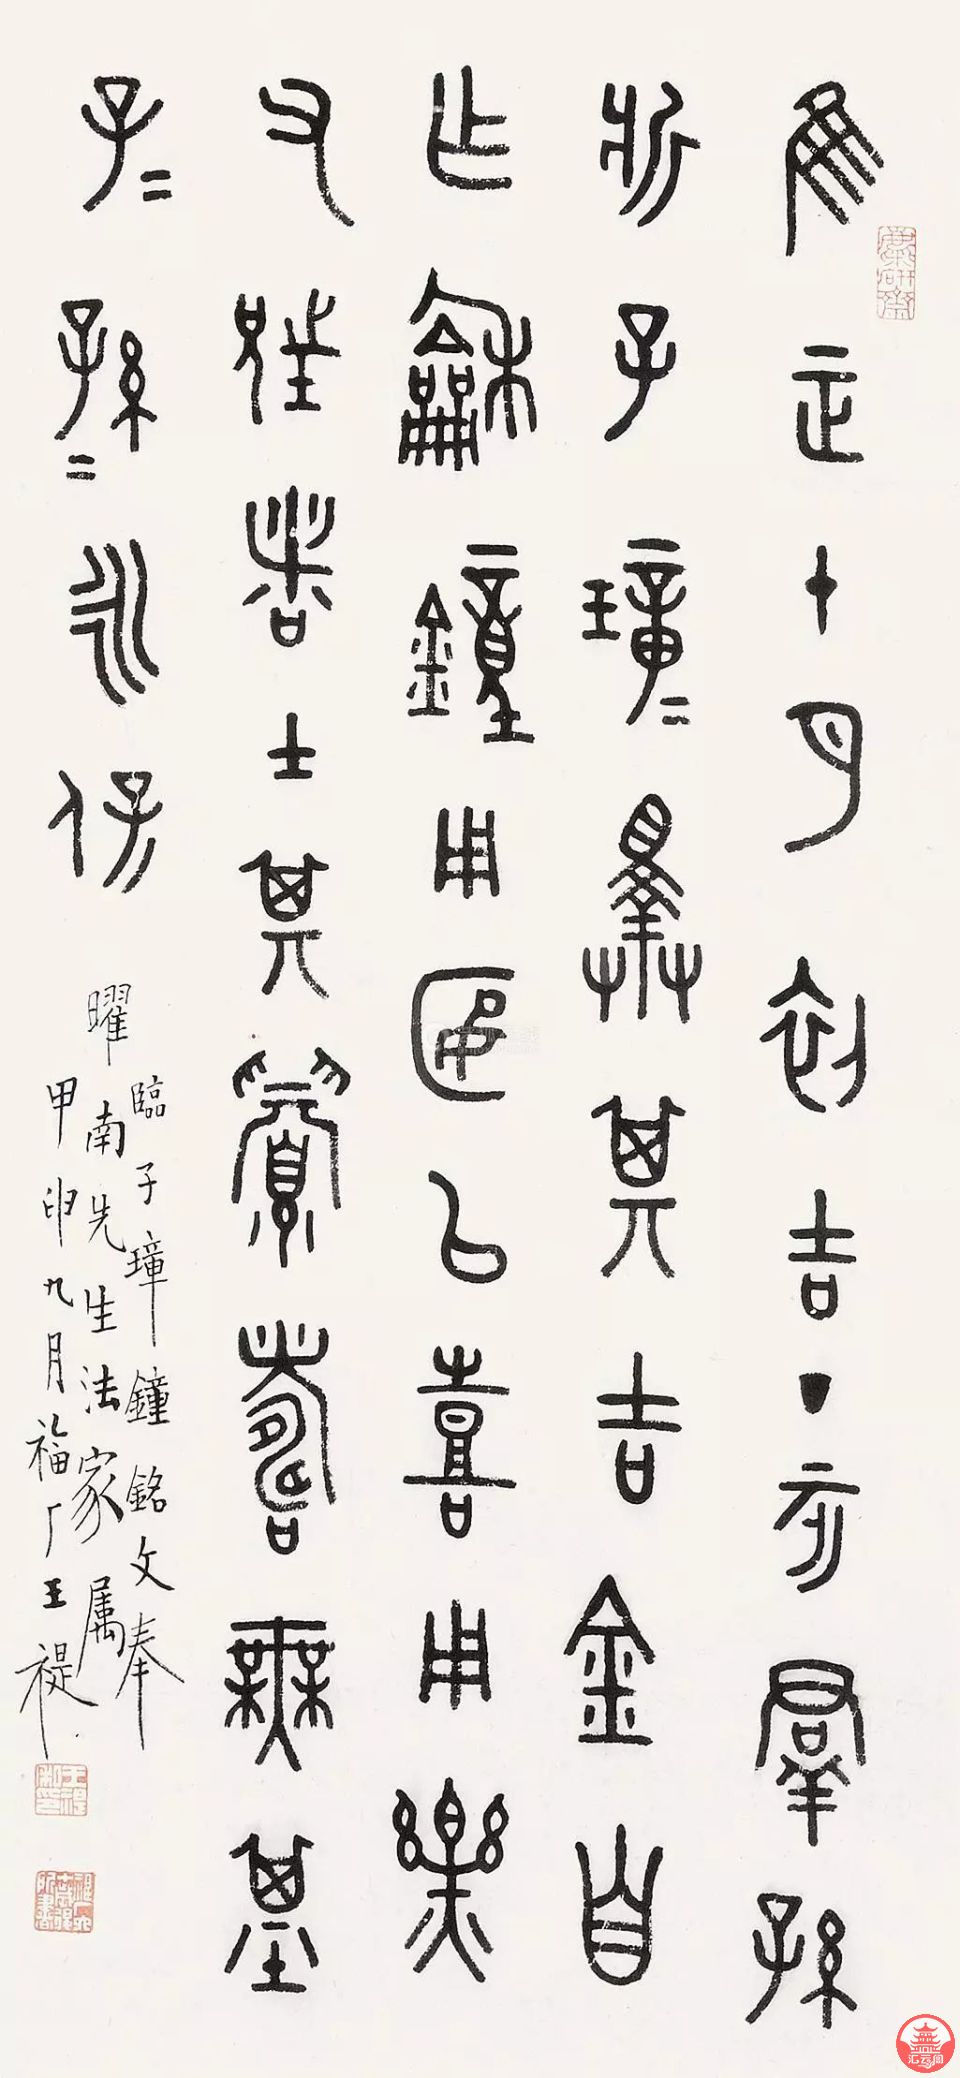 隹正十月初吉丁亥羣孫
斨子璋=擇其吉金自
乍龢鐘用匽以喜用樂
父兄者士其眉壽無基
子=孫=永保
臨子璋鐘銘文奉
曜南先生法家屬
甲申九月福厂王禔
麋研齋
王禔私印